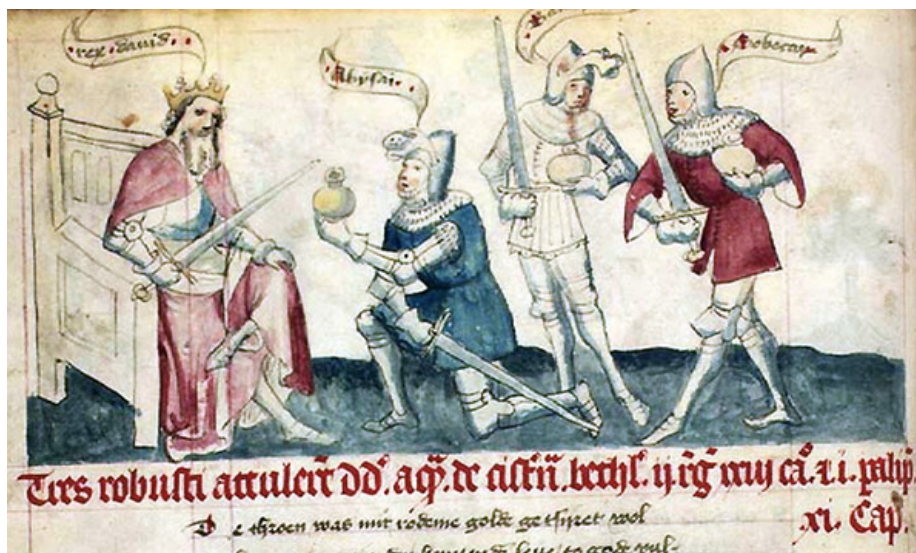 rex david
Abysai
Sobocay
Tres robusti attulerūt dd̄. aq̄. de cistn̄. bethl̄. ij rḡ xxiij ca°. ⁊ i. palip̄.
xi. Cap.
De throen was mit rodeme golde getsyret wol